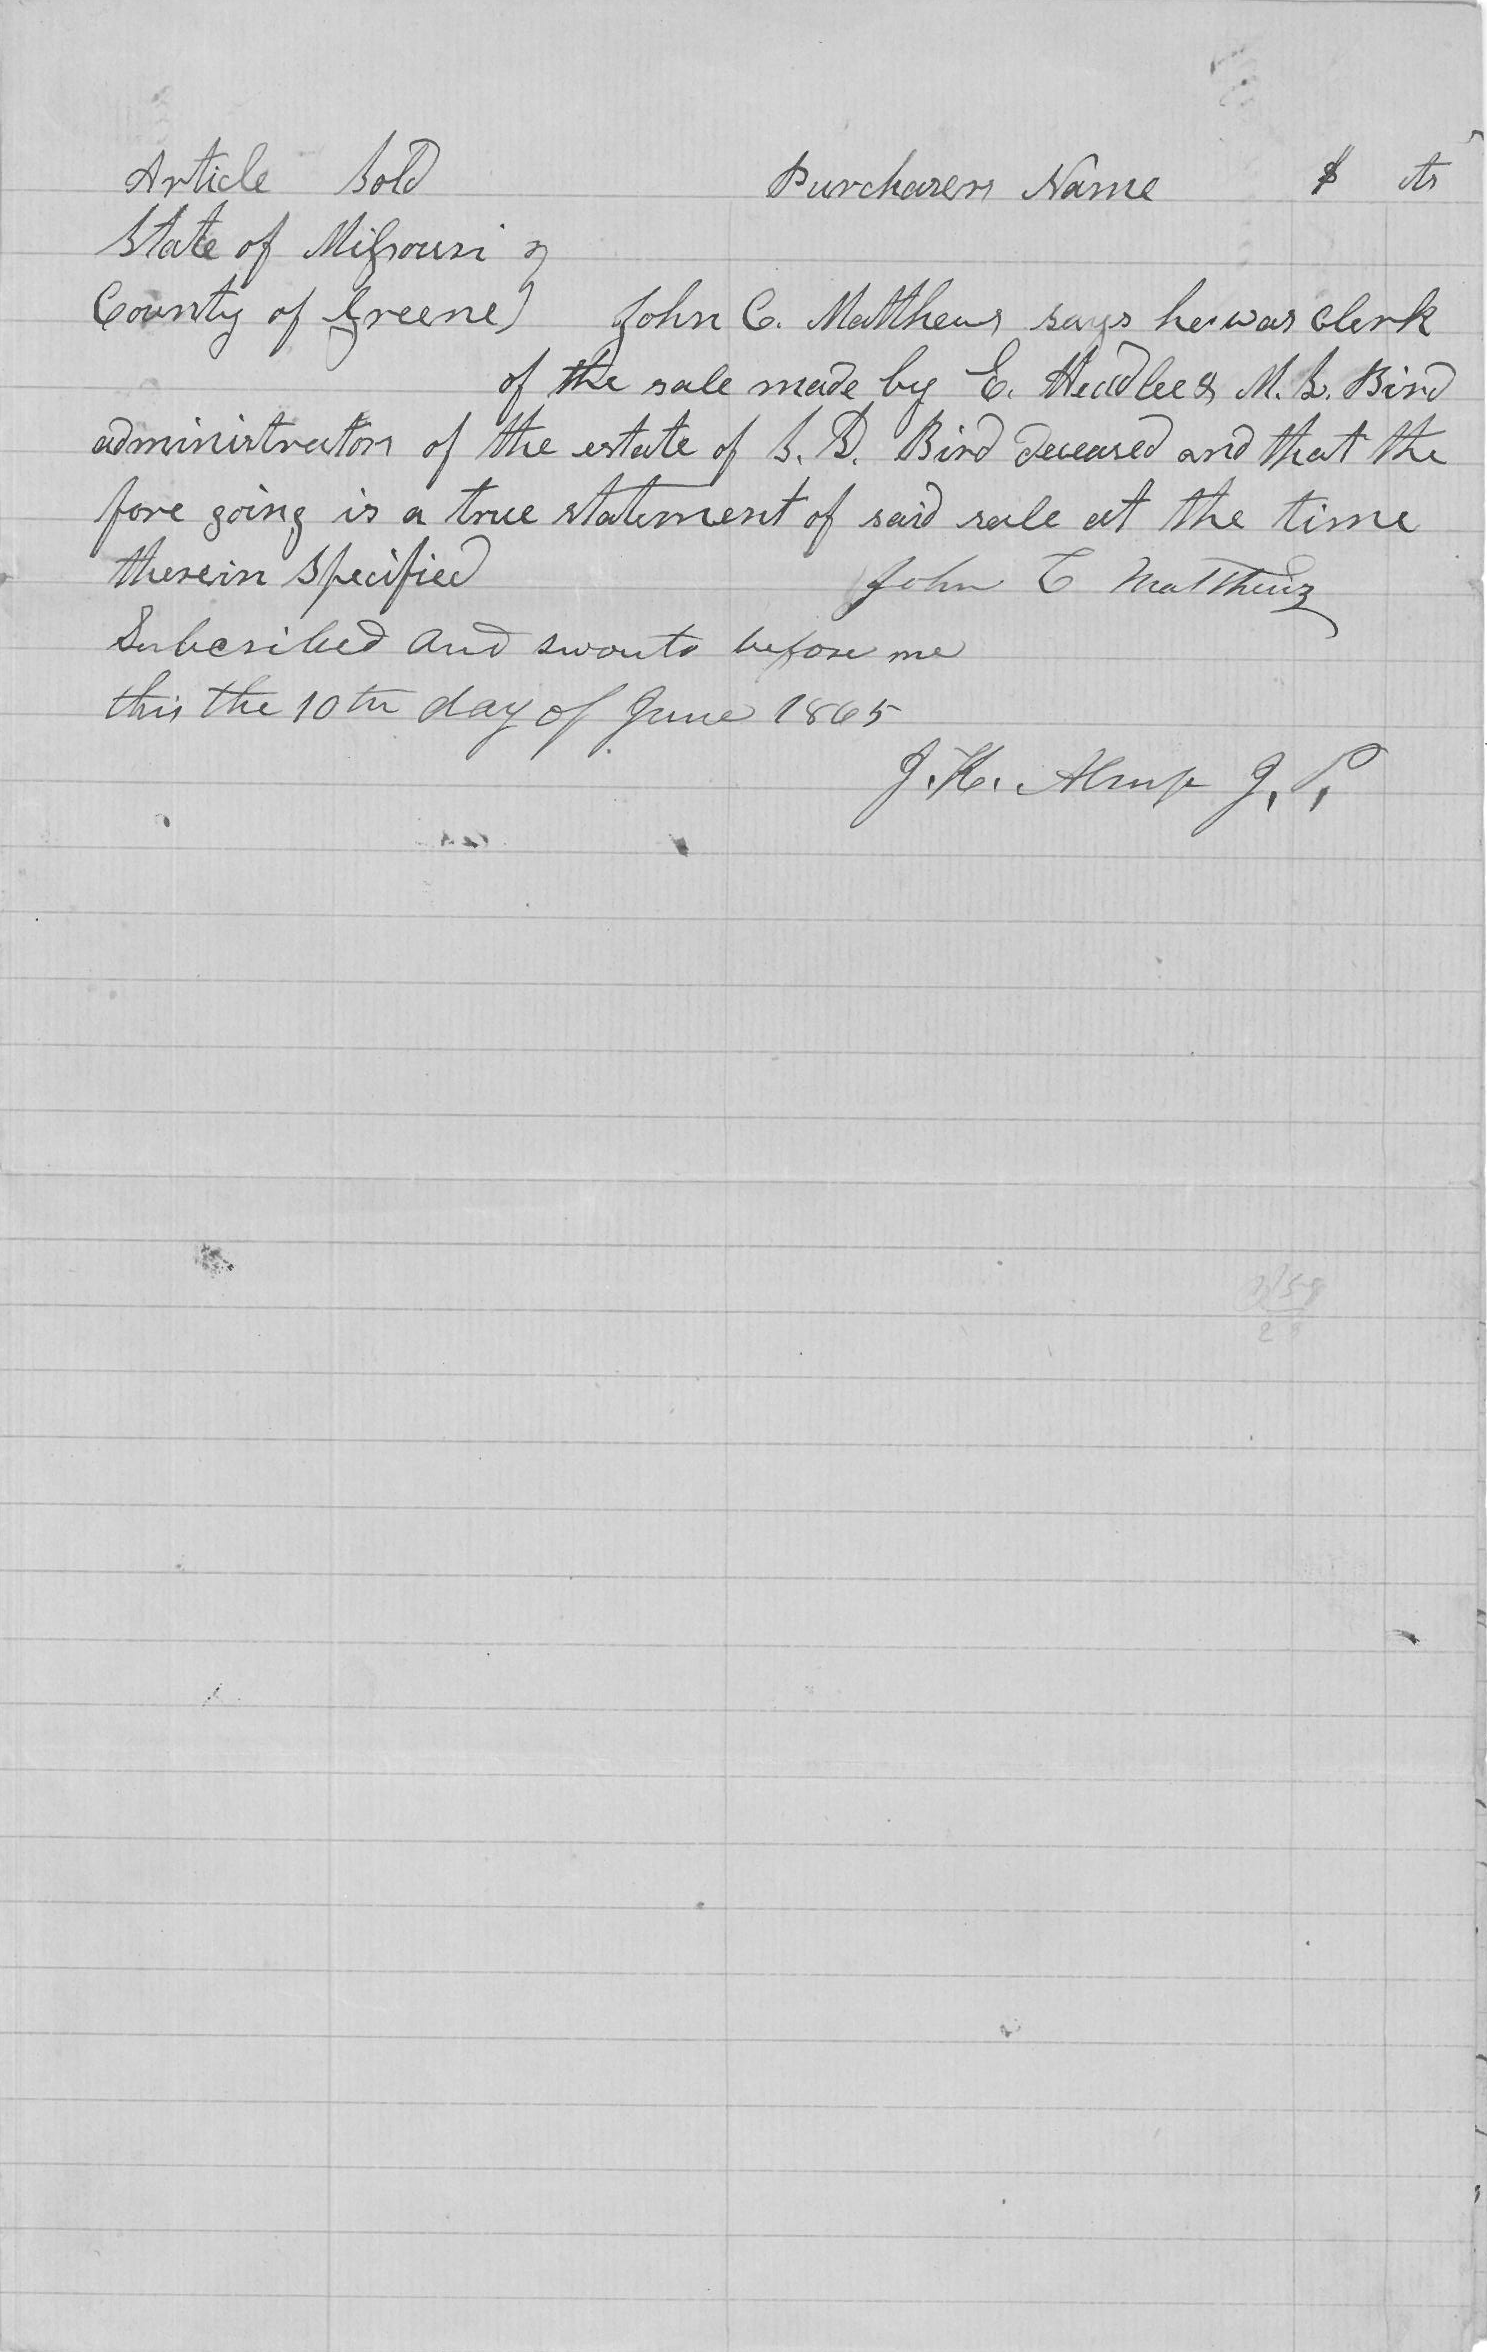 Article Sold Purchasers Name $ cts
State of Missouri }
County of Greene } John C. Matthews says he was clerk
of the sale made by E. Headlee & M. L. Bird
administrators of the estate of S. B. Bird deceased and that the
fore going is a true statement of said sale at the time
therein Specified John C Matthews
Subcribed and swonto before me
this the 10th day of June 1865
J. K. Alsup J. P.